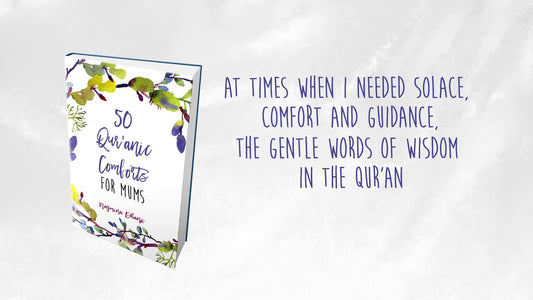 50
Qur'anic
Comforts
FOR MUMS
AT TIMES WHEN I NEEDED SOLACE,
COMFORT AND GUIDANCE,
THE GENTLE WORDS OF WISDOM
IN THE QUR'AN